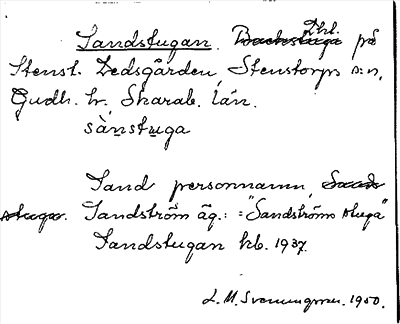 Sandstugan. Backstuga Dhl. på
Stenst. Dedsgården, Stenstorps s:n,
Gudh. hr, Skarab. län.
sànstuga
Sand personnamn, Sand-
stugan. Sandström äg.: "Sandströms stuga"
Sandstugan kb. 1937.
L. M. Svenungsson. 1950.